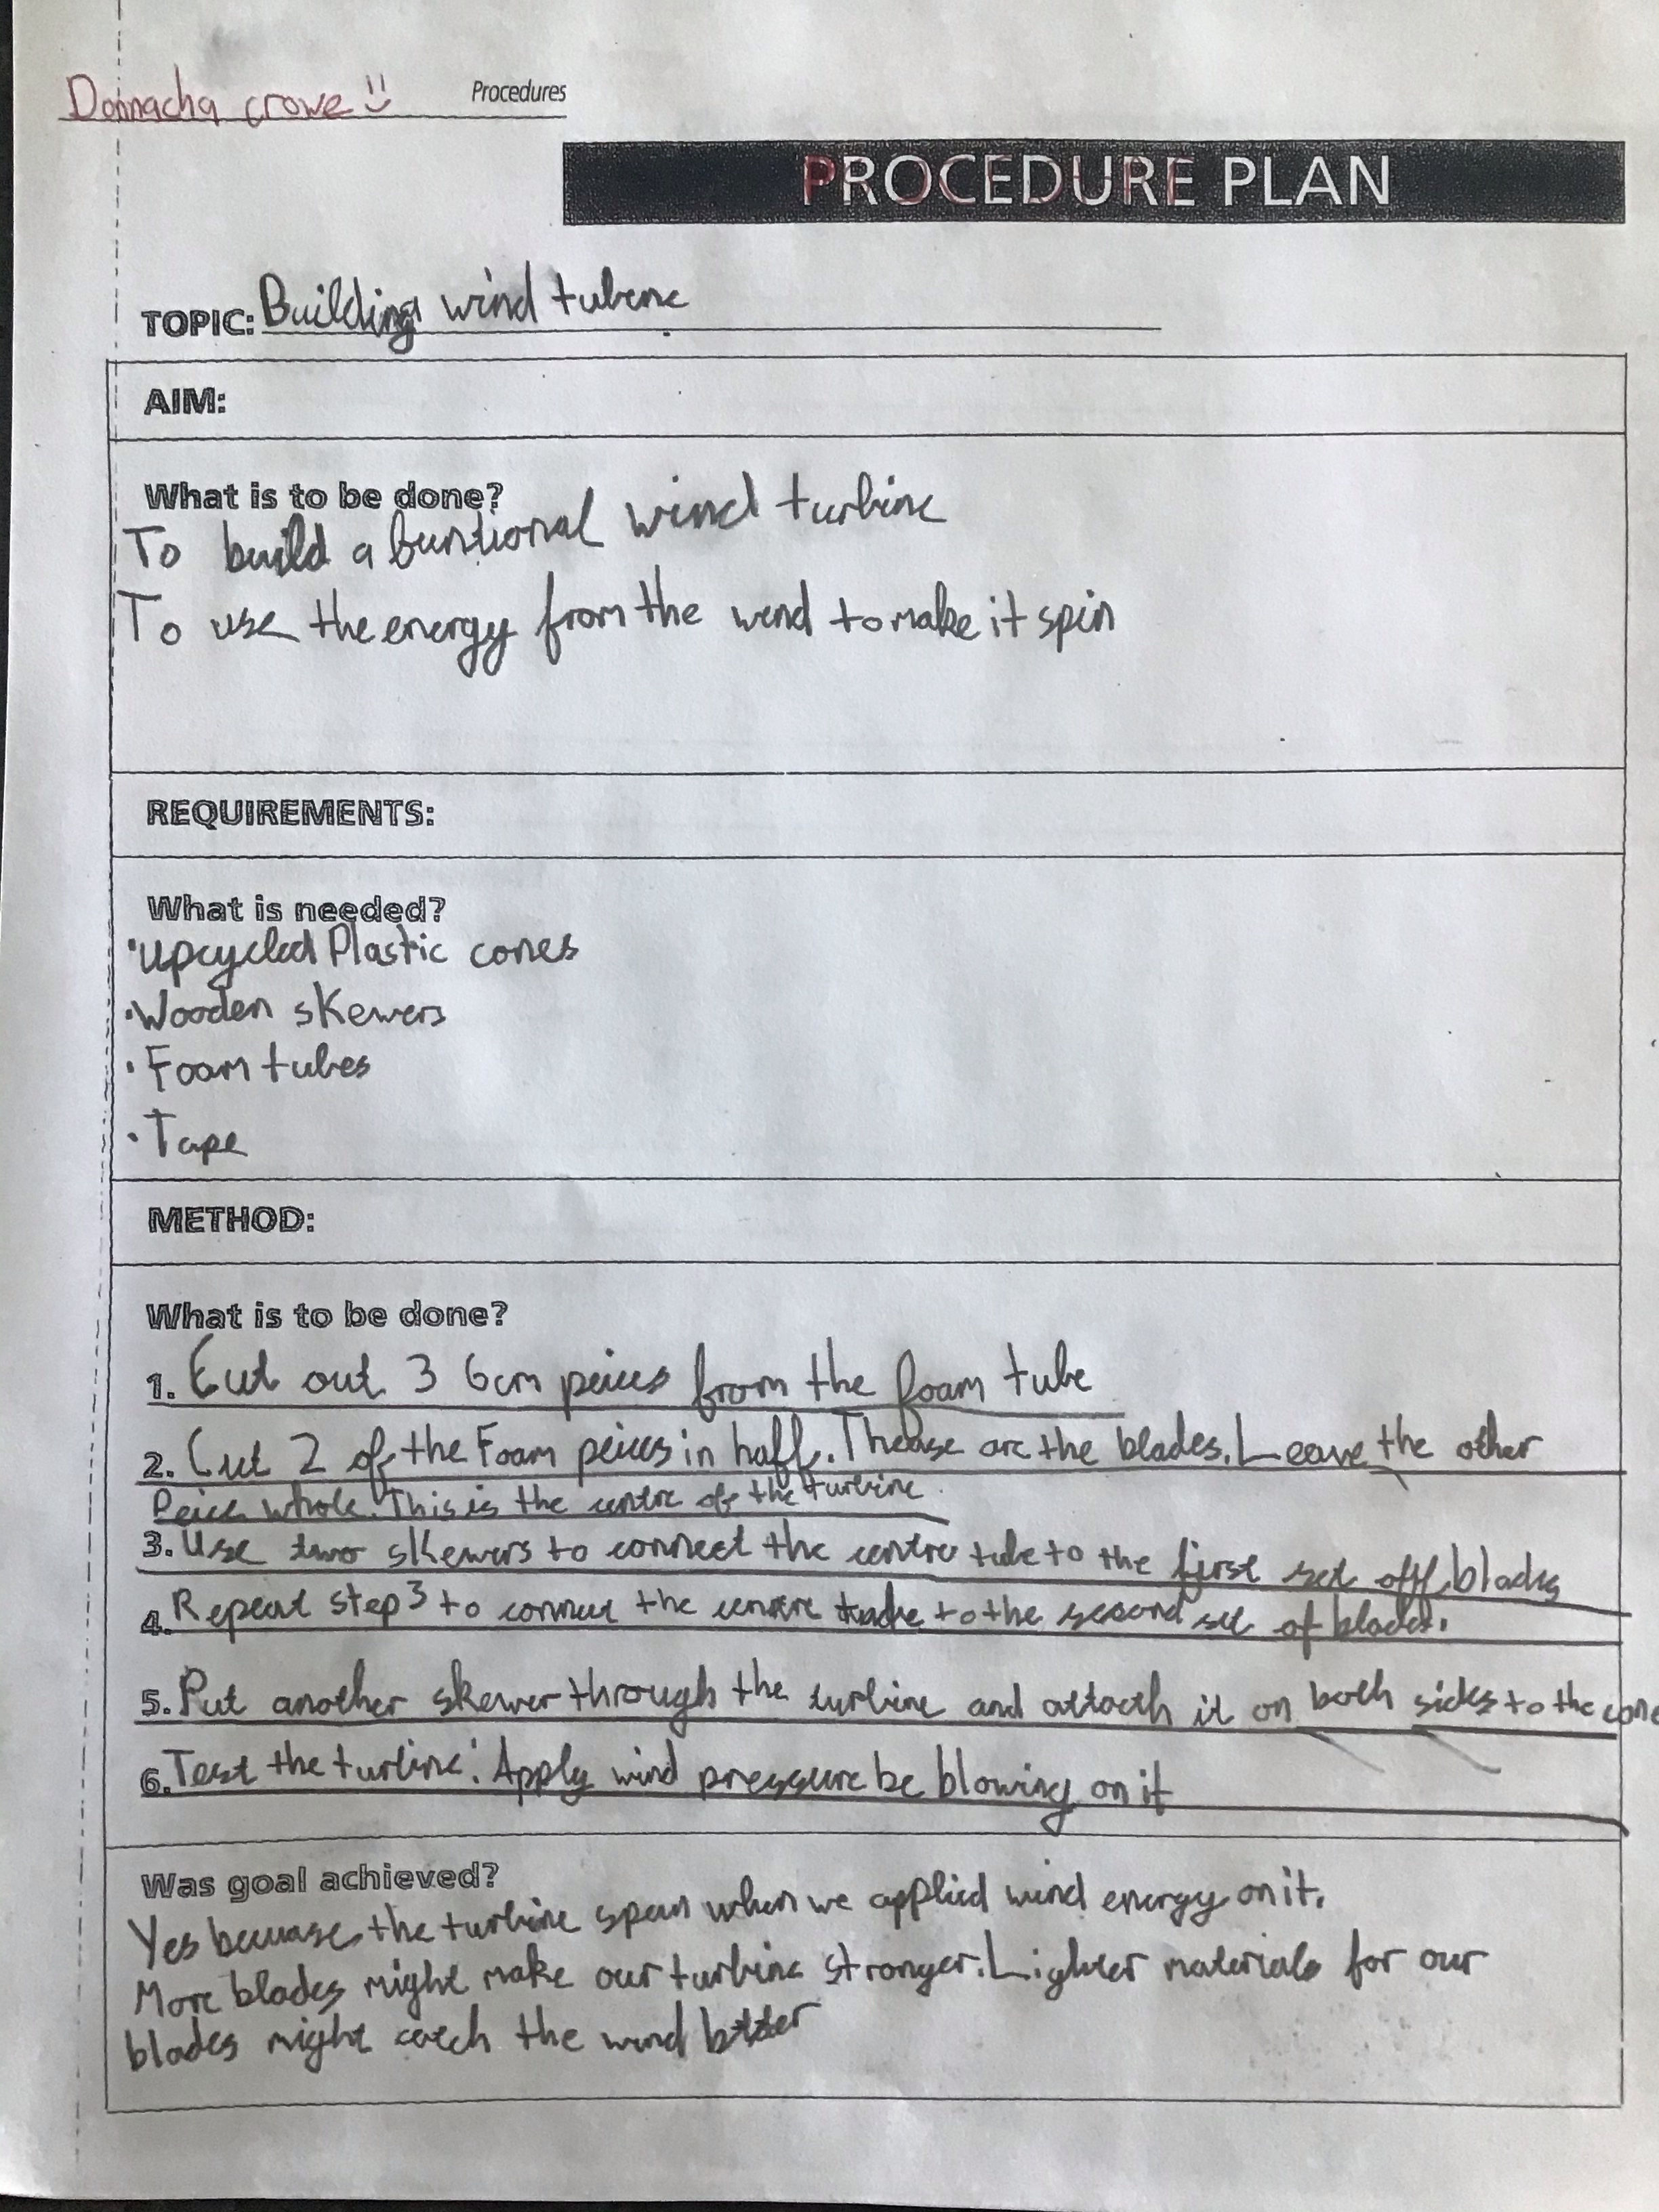 Donnacha crowe Procedures
PROCEDURE PLAN
TOPIC: Building wind tubine
AIM:
What is to be done?
To build a funtional wind turbine
To use the energy from the wind to make it spin
REQUIREMENTS:
What is needed?
• Upcycled Plastic cones
• Wooden skewers
• Foam tubes
• Tape
METHOD:
What is to be done?
1. Cut out 3 6cm peices from the foam tube
2. Cut 2 of the Foam peices in half. Thease are the blades. Leave the other
Peice whole. This is the centre of the turbine.
3. Use two skewers to connect the centre tube to the first set off blades
4. Repeat step 3 to connect the centre to the second set of blades.
5. Put another skewer through the turbine and attach it on both sides to the cone
6. Test the turbine: Apply wind pressure be blowing on it
Was goal achieved?
Yes because the turbine spun when we applied wind energy on it.
More blades might make our turbine stronger. Lighter materials for our
blades might catch the wind better